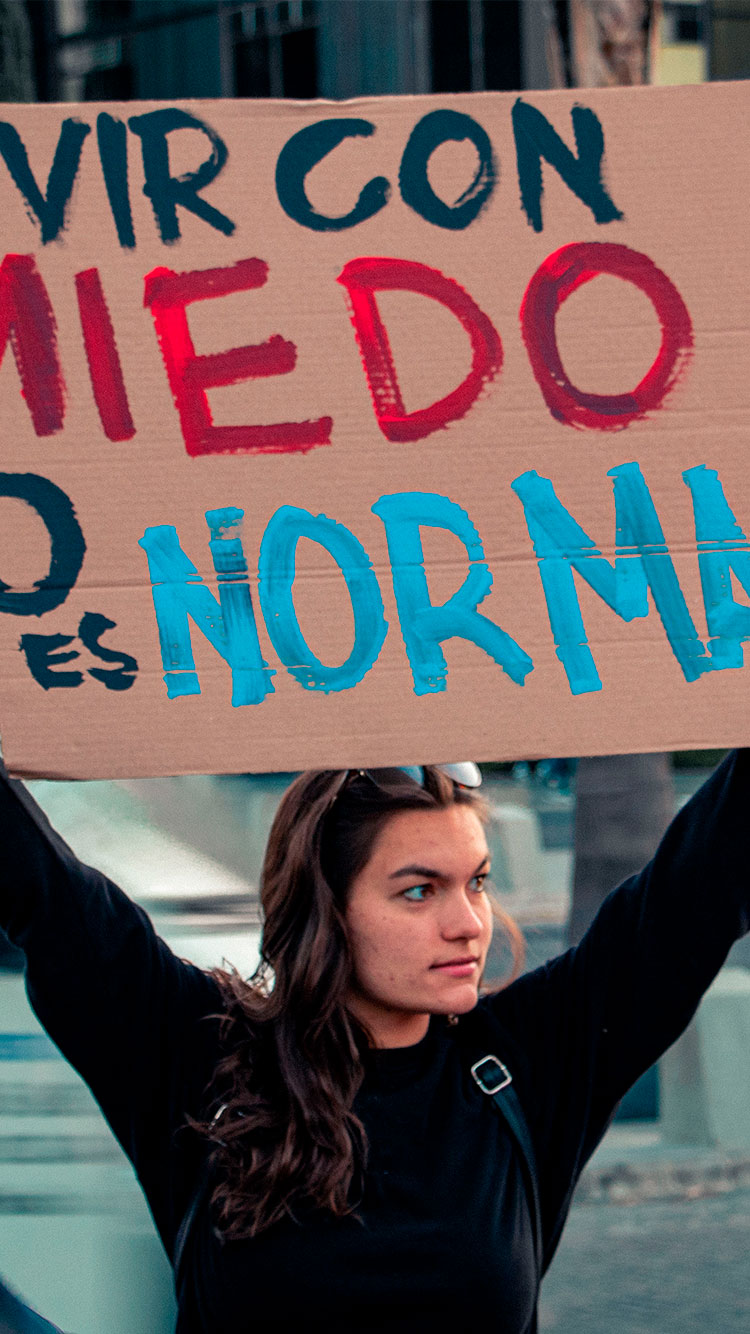 VIR CON
MIEDO
O
ES NORMA